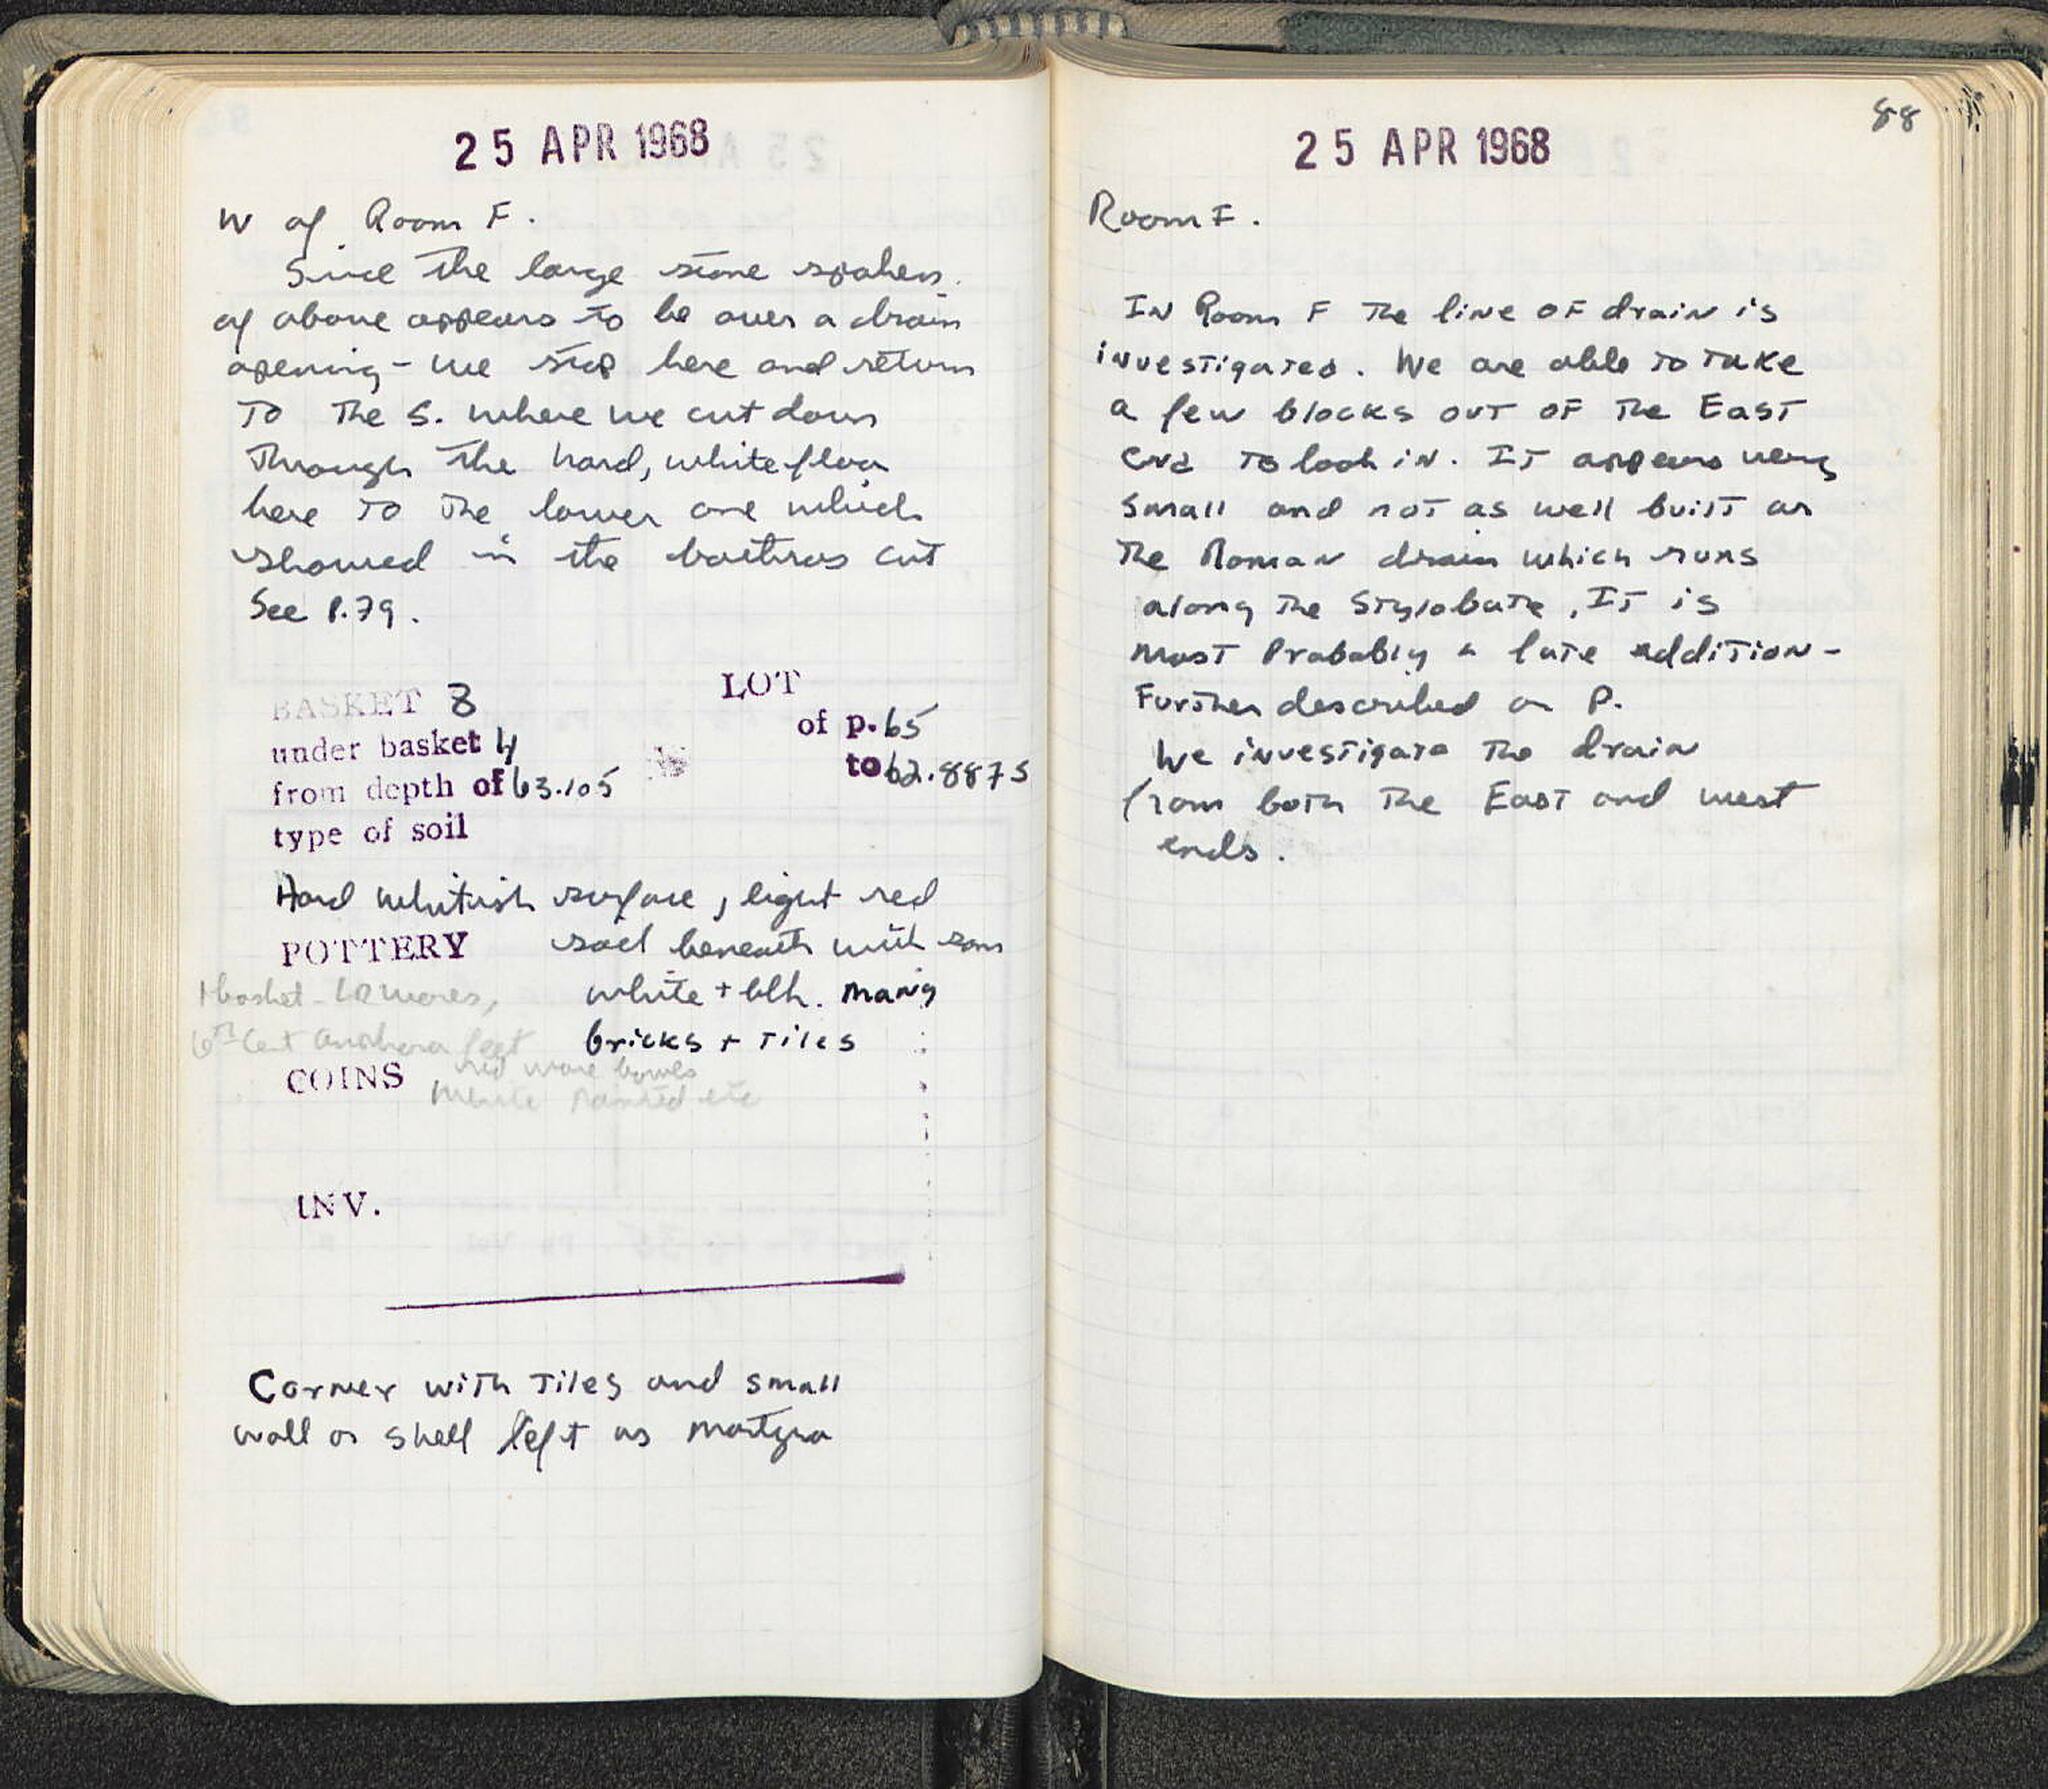 25 APR 1968
W of Room F.
Since the large stone spoken
of above appears to be over a drain
opening - we stop here and return
To The S. where we cut down
Through the hard, white floor
here to the lower one which
showed in the bothros cut
See P.79.
BASKET 8 LOT
under basket 4 of p. 65
from depth of 63.105 to 62.8875
type of soil
Hard whitish surface, light red
POTTERY soil beneath with som
1 basket - LR wares, white + blk. many
6th Cent Amphora feet bricks + Tiles
COINS red ware bowls
White Painted etc
INV.
Corner with Tiles and small
wall or shelf left as martyra
88
25 APR 1968
Room F.
In Room F The line of drain is
investigated. We are able to take
a few blocks out of the East
end to look in. It appears very
small and not as well built as
The Roman drain which runs
along the Stylobate, It is
most Probably a late addition -
Further described on P.
We investigate the drain
from both the East and west
ends.